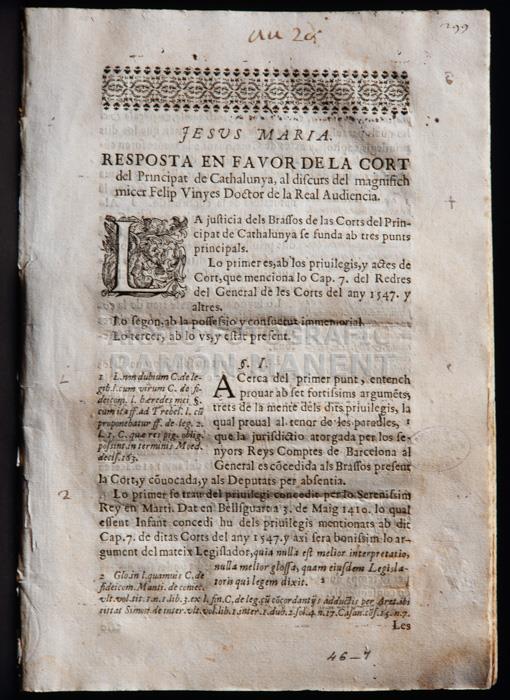 299
JESUS MARIA.
RESPOSTA EN FAVOR DE LA CORT
del Principat de Cathalunya, al discurs del magnifich
micer Felip Vinyes Doctor de la Real Audiencia.
LA justicia dels Brassos de las Corts del Prin-
cipat de Cathalunya se funda ab tres punts
principals.
Lo primer es, ab los priuilegis, y actes de
Cort, que menciona lo Cap. 7. del Redres
del General de les Corts del any 1547. y
altres.
Lo segon, ab la possessio y consuetut immemorial.
Lo tercer, ab lo vs, y estat present.
RAMON MANENT
§. I.
ACerca del primer punt, entench
prouar ab set fortissims argumẽts,
trets de la mente dels dits priuilegis, la
qual proual al tenor de les paraules, 1
que la jurisdictio atorgada per los se-
nyors Reys Comptes de Barcelona al
General es cõcedida als Brassos present
la Cort, y cõuocada, y als Deputats per absentia.
1 L. non dubium C. de le-
gib. l. cum virum C. de fi-
deicom. l. hæredes mei §.
cum ita ff. ad Trebel. l. cũ
proponebatur ff. de leg. 2.
l. 1. C. quæ res pig. oblig.
possint. in terminis Moed.
decis. 163.
2
Lo primer se trau del priuilegi concedit per lo Serenissim
Rey en Marti. Dat en Bellsguart a 3. de Maig 1410. lo qual
essent Infant concedi hu dels priuilegis mentionats ab dit
Cap. 7. de ditas Corts del any 1547. y axi sera bonissim lo ar-
gument del mateix Legislador, quia nulla est melior interpretatio,
nulla melior glossa, quam eiusdem Legisla-
toris qui legem dixit. 2
2 Glo. in l. quamuis C. de
fideicom. Manti. de coniec.
vlt. vol. tit. 1. n. 1. lib. 3. ex l. fin. C. de leg. cũ cõcordantijs adductis per
Simon. de inter. vlt. vol. lib. 1. inter. 1. dub. 2. sol. 4. n. 17. Casan. cõs. 15. n. 7.
Les
46-7